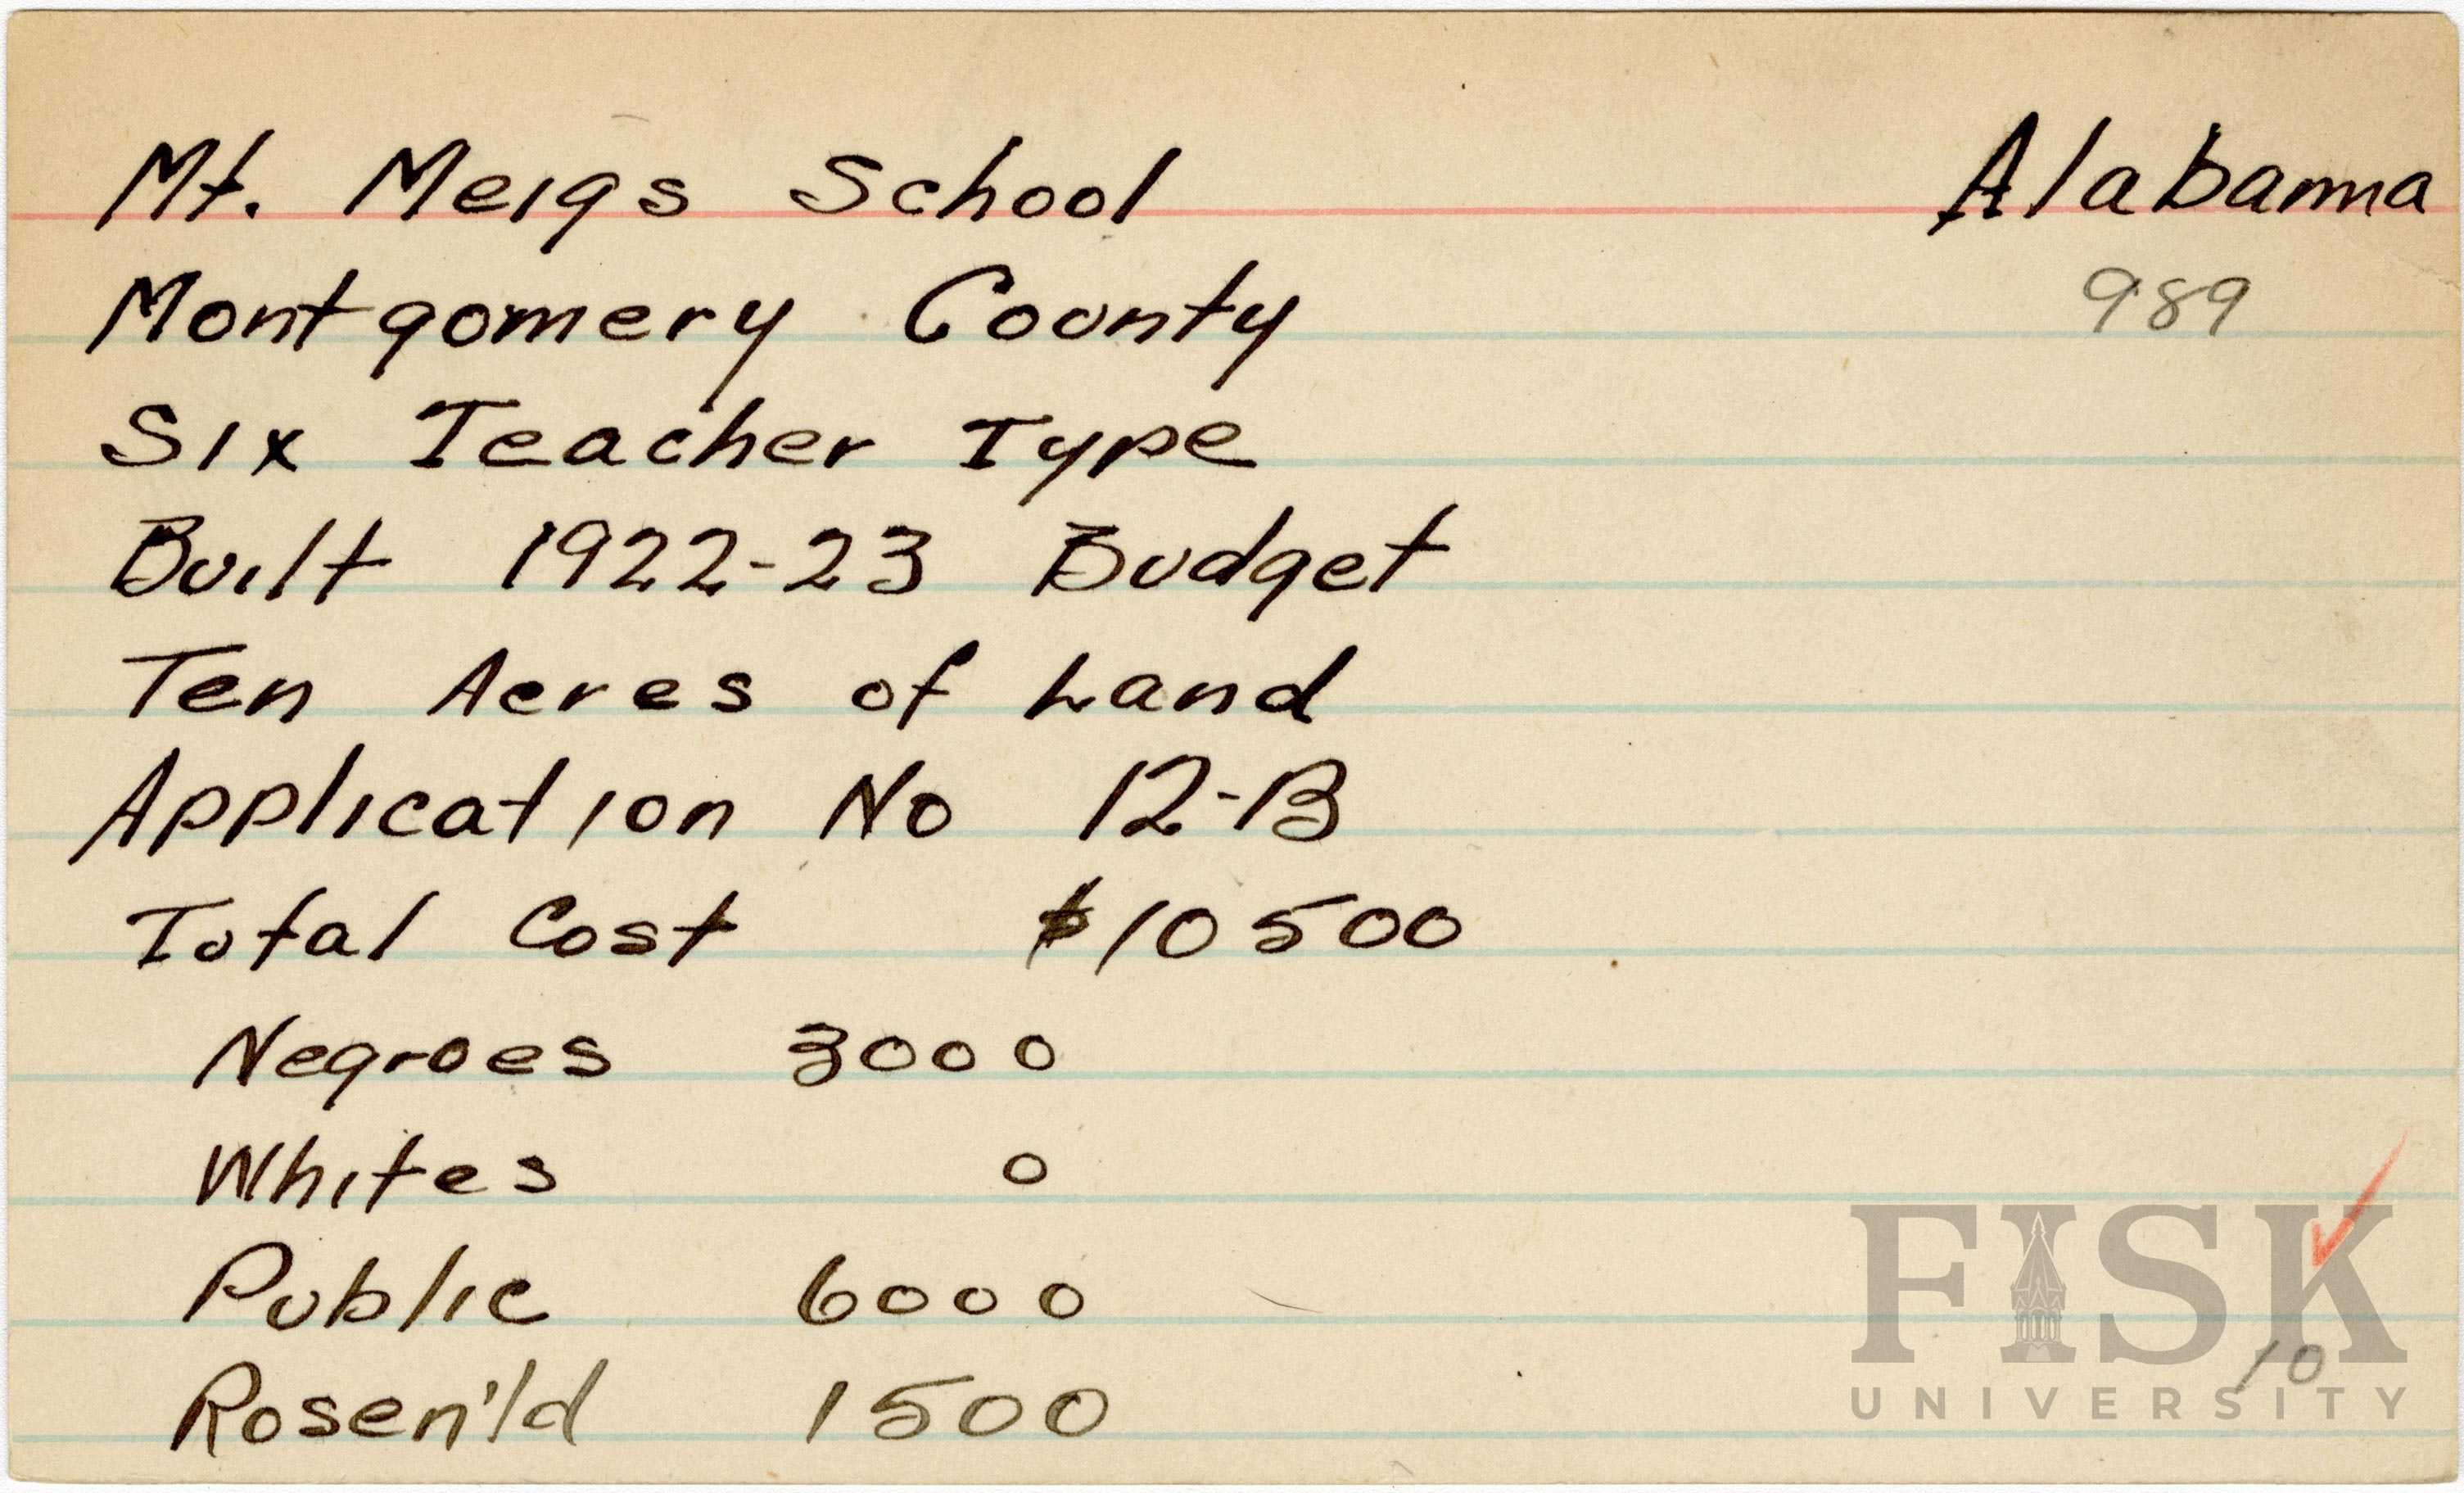 Mt. Meigs School Alabama
Montgomery County 989
Six Teacher Type
Built 1922-23 Budget
Ten Acres of Land
Application No 12-B
Total Cost $10 500
Negroes 3000
Whites 0
Public 6000
Rosen'ld 1500
10
FISK
UNIVERSITY